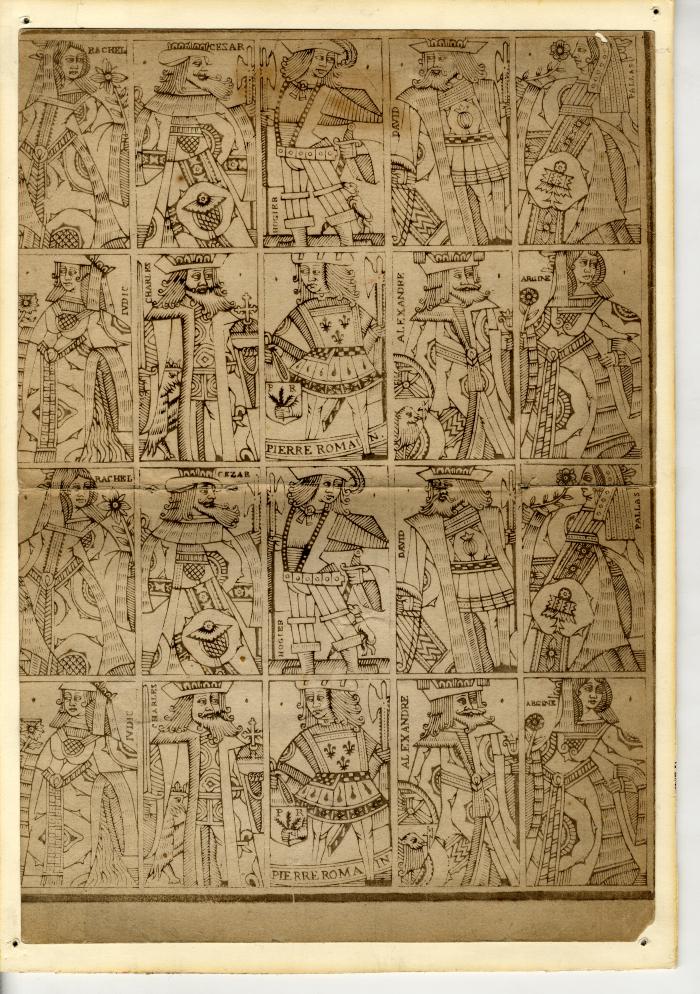 RACHEL
CEZAR
HOGIER
DAVID
PALLAS
IVDIC
CHARLES
P R
PIERRE ROMAIN
ALEXANDRE
ARGINE
RACHEL
CEZAR
HOGIER
DAVID
PALLAS
IVDIC
CHARLES
PIERRE ROMAIN
ALEXANDRE
ARGINE